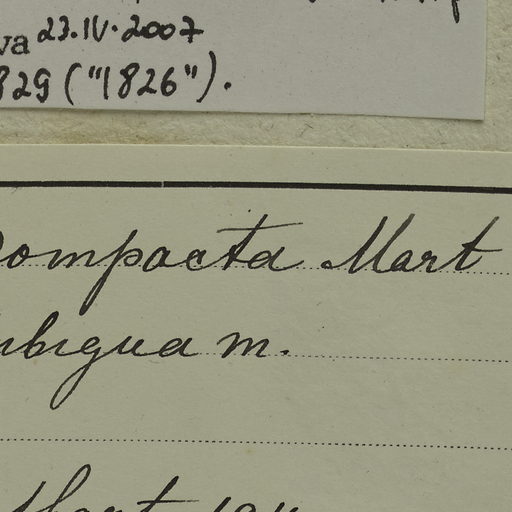 va 23.IV.2007
829 ("1826").
Compacta Mart
mbigua m.
Mart